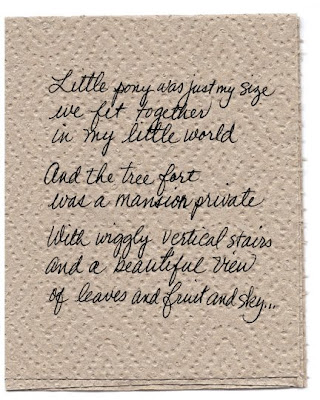 Little pony was just my size
we fit together
in my little world
And the tree fort
was a mansion private
With wiggly vertical stairs
and a beautiful view
of leaves and fruit and sky...